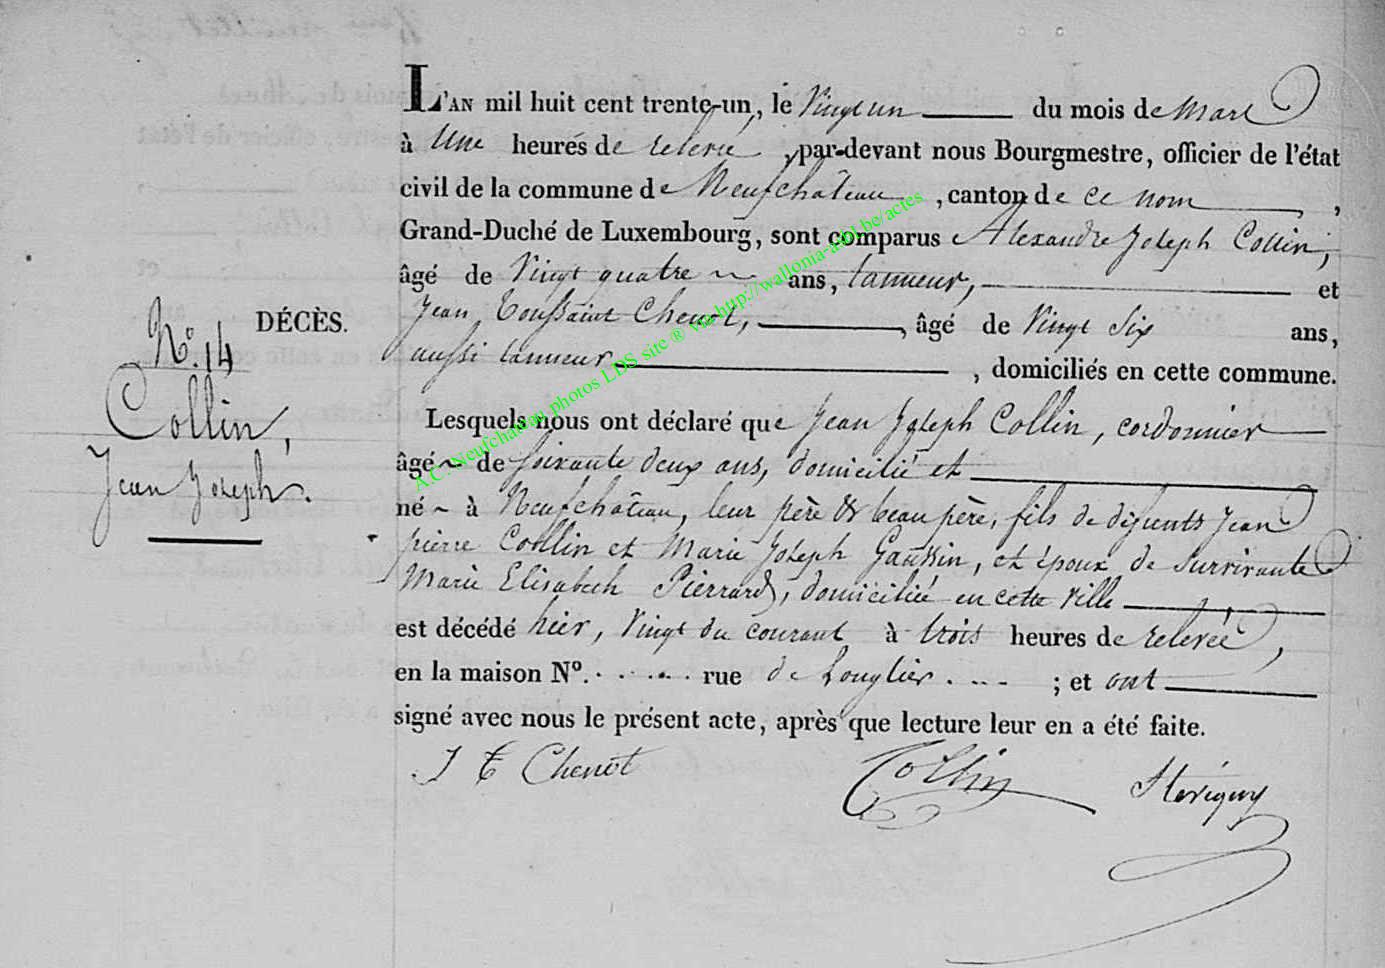 L'AN mil huit cent trente-un, le Vingt un du mois de Mars
à Une heures de relevée, par-devant nous Bourgmestre, officier de l'état
civil de la commune de Neufchâteau, canton de ce nom,
Grand-Duché de Luxembourg, sont comparus Alexandre Joseph Collin,
âgé de Vingt quatre ans, tanneur, et
DÉCÈS.
Jean Toussaint Chenot, âgé de Vingt Six ans,
aussi tanneur, domiciliés en cette commune.
N.° 14
Collin,
Jean Joseph.
Lesquels nous ont déclaré que Jean Joseph Collin, cordonnier
âgé de soixante deux ans, domicilié et
né à Neufchâteau, leur père & beau père, fils de défunts Jean
pierre Colllin et Marie Joseph Gaussin, et époux de Survivante
Marie Elisabeth Pierrard, domiciliée en cette ville
est décédé hier, Vingt du courant à trois heures de relevée,
en la maison N°. rue de Longlier ; et ont
signé avec nous le présent acte, après que lecture leur en a été faite.
J T Chenot Collin
A.C. Neufchateau photos LDS site ® via http://wallonia-asbl.be/actes